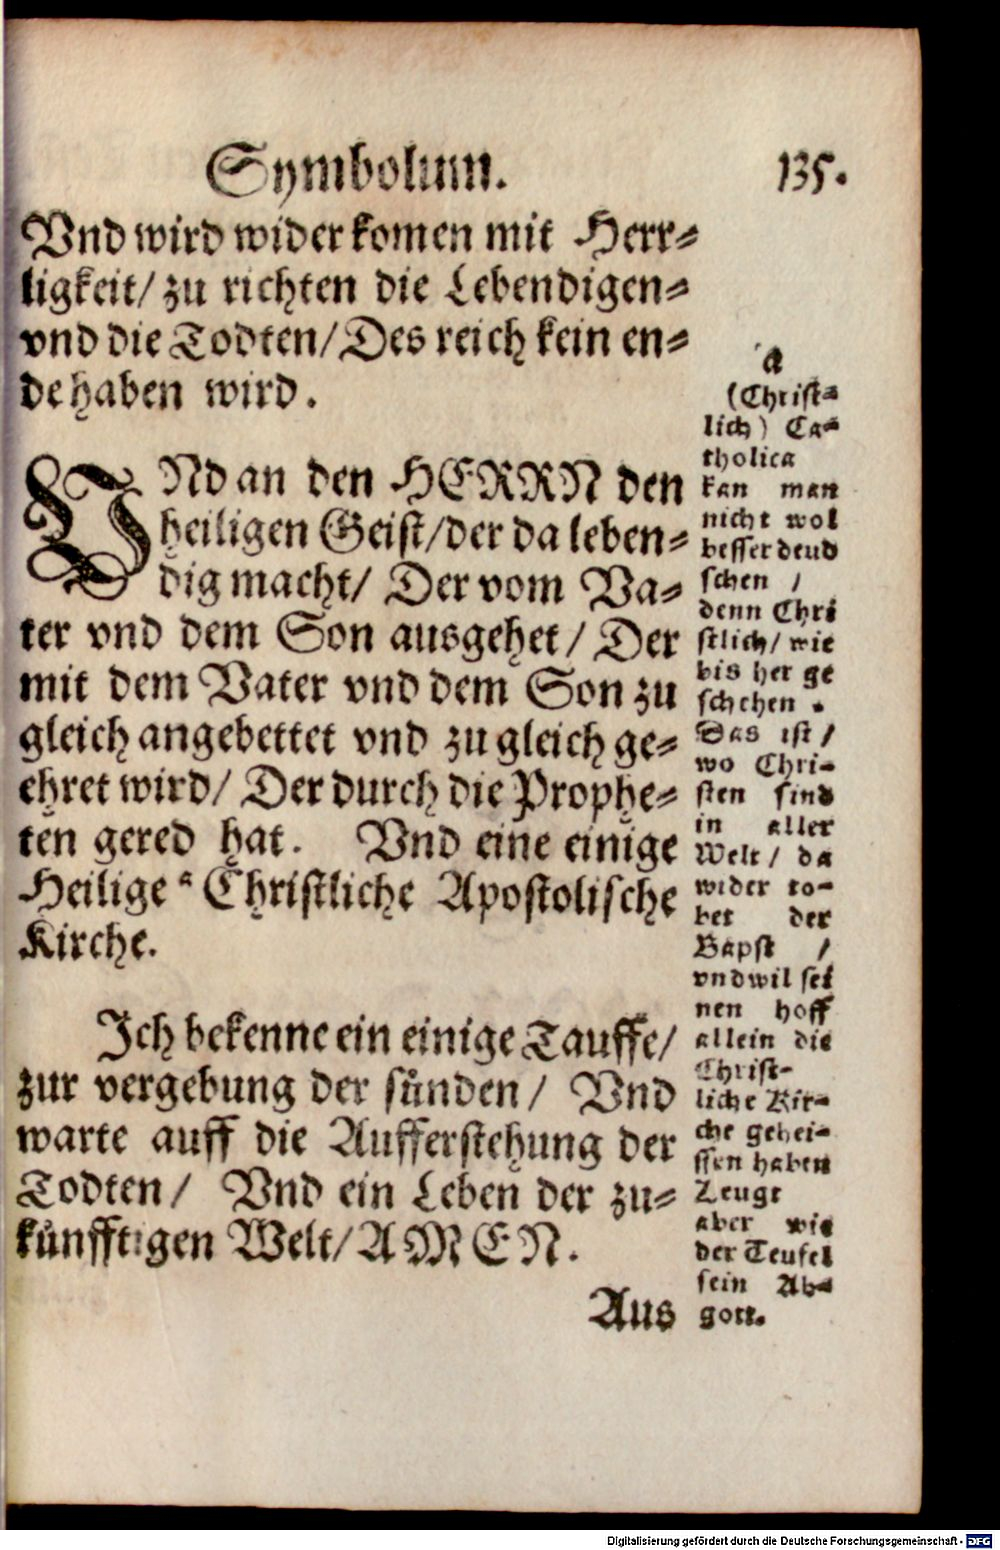 Symbolum. 135.
Vnd wird wider komen mit Herr⸗
ligkeit/ zu richten die Lebendigen⸗
vnd die Todten/ Des reich kein en⸗
de haben wird.
VNd an den HERRN den
heiligen Geist/ der da leben⸗
dig macht/ Der vom Va⸗
ter vnd dem Son ausgehet/ Der
mit dem Vater vnd dem Son zu
gleich angebettet vnd zu gleich ge⸗
ehret wird/ Der durch die Prophe⸗
ten gered hat. Vnd eine einige
Heilige a Christliche Apostolische
Kirche.
Ich bekenne ein einige Tauffe/
zur vergebung der sünden/ Vnd
warte auff die Aufferstehung der
Todten/ Vnd ein Leben der zu⸗
künfftigen Welt/ AMEN.
Aus
a
(Christ⸗
lich) Ca⸗
tholica
kan man
nicht wol
besser deud
schen /
denn Chri
stlich/ wie
bis her ge
schehen .
Das ist /
wo Chri⸗
sten sind
in aller
Welt/ da
wider to⸗
bet der
Bapst /
vnd wil sei
nen hoff
allein die
Christ⸗
liche Kir⸗
che gehei⸗
ssen haben
Zeugt
aber wie
der Teufel
sein Ab⸗
gott.
Digitalisierung gefördert durch die Deutsche Forschungsgemeinschaft - DFG